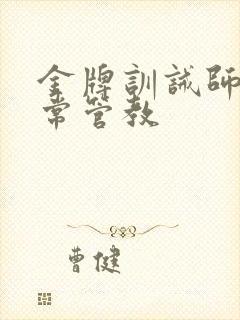 金牌訓誡師
常管教
曹健